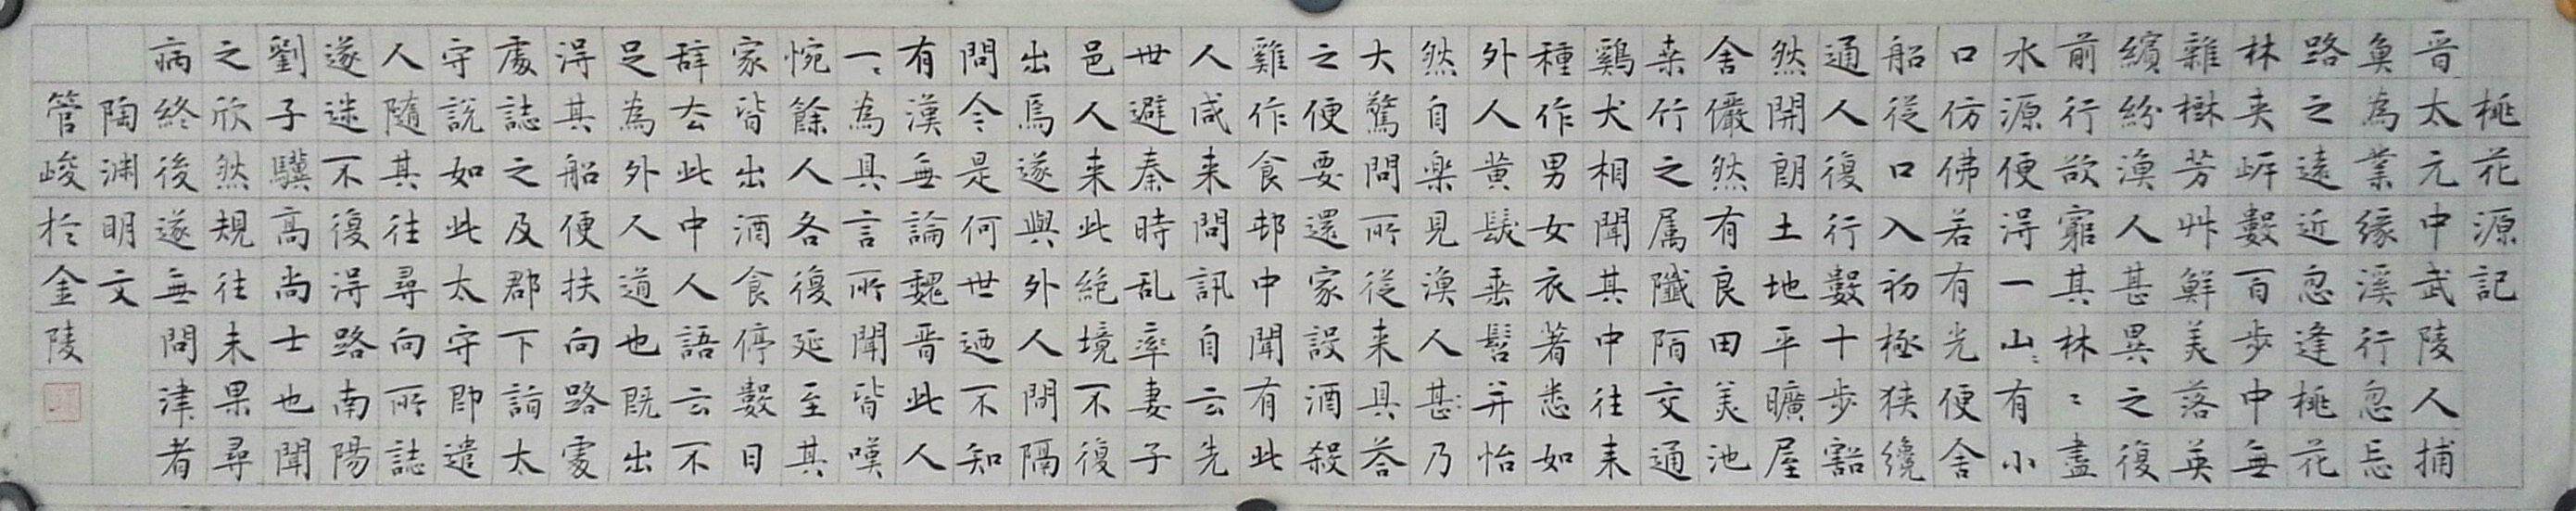 桃花源記
晋太元中武陵人捕
魚為業緣溪行忽忘
路之遠近忽逢桃花
林夾岸數百步中無
雜樹芳艸鮮美落英
繽紛漁人甚異之復
前行欲窮其林〻盡
水源便得一山〻有小
口仿佛若有光便舍
船從口入初極狹纔
通人復行數十步豁
然開朗土地平曠屋
舍儼然有良田美池
桒竹之属阡陌交通
鷄犬相聞其中往来
種作男女衣著悉如
外人黄髮垂髫并怡
然自樂見漁人甚〻乃
大驚問所從来具荅
之便要還家設酒殺
雞作食邨中聞有此
人咸来問訊自云先
世避秦時乱率妻子
邑人来此絶境不復
出焉遂與外人間隔
問今是何世迺不知
有漢無論魏晋此人
一〻為具言所聞皆嘆
惋餘人各復延至其
家皆出酒食停數日
辞去此中人語云不
足為外人道也既出
得其船便扶向路處
處誌之及郡下詣太
守說如此太守即遣
人隨其往尋向所誌
遂迷不復得路南陽
劉子驥高尚士也聞
之欣然規往未果尋
病終後遂無問津者
陶渊明文
管峻於金陵